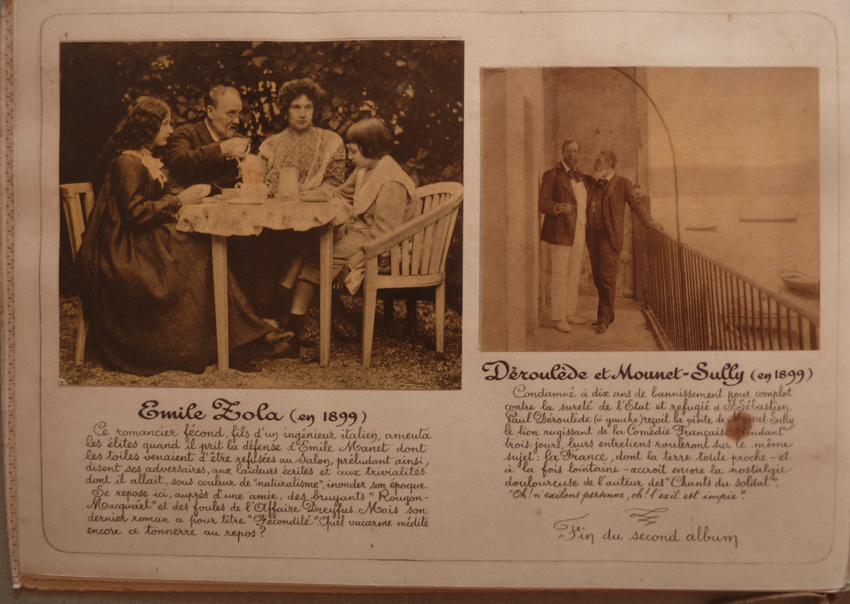 Emile Zola (en 1899)
Ce romancier fécond, fils d'un ingénieur italien, ameuta
les élites quand il prit la défense d'Emile Manet dont
les toiles venaient d'être refusées au Salon, préludant ainsi,
disent ses adversaires, aux laideurs écrites et aux trivialités
dont il allait, sous couleur de "naturalisme", inonder son époque.
Se repose ici, auprès d'une amie, des bruyants "Rougon-
Macquart" et des foules de l'Affaire Dreyfus. Mais son
dernier roman a pour titre "Fécondité". Quel vacarme médite
encore ce tonnerre au repos ?
Déroulède et Mounet-Sully (en 1899)
Condamné à dix ans de bannissement pour complot
contre la sureté de l'Etat et refugié a St Sébastien,
Paul Déroulède (à gauche) reçoit la visite de Mounet Sully
le lion rugissant de la Comédie Française. Pendant
trois jours, leurs entretiens rouleront sur le même
sujet : la France, dont la terre toute proche - et
à la fois lointaine - accroit encore la nostalgie
douloureuse de l'auteur des "Chants du soldat".
"Oh ! n'exilons personne, oh ! l'exil est impie".
Fin du second album